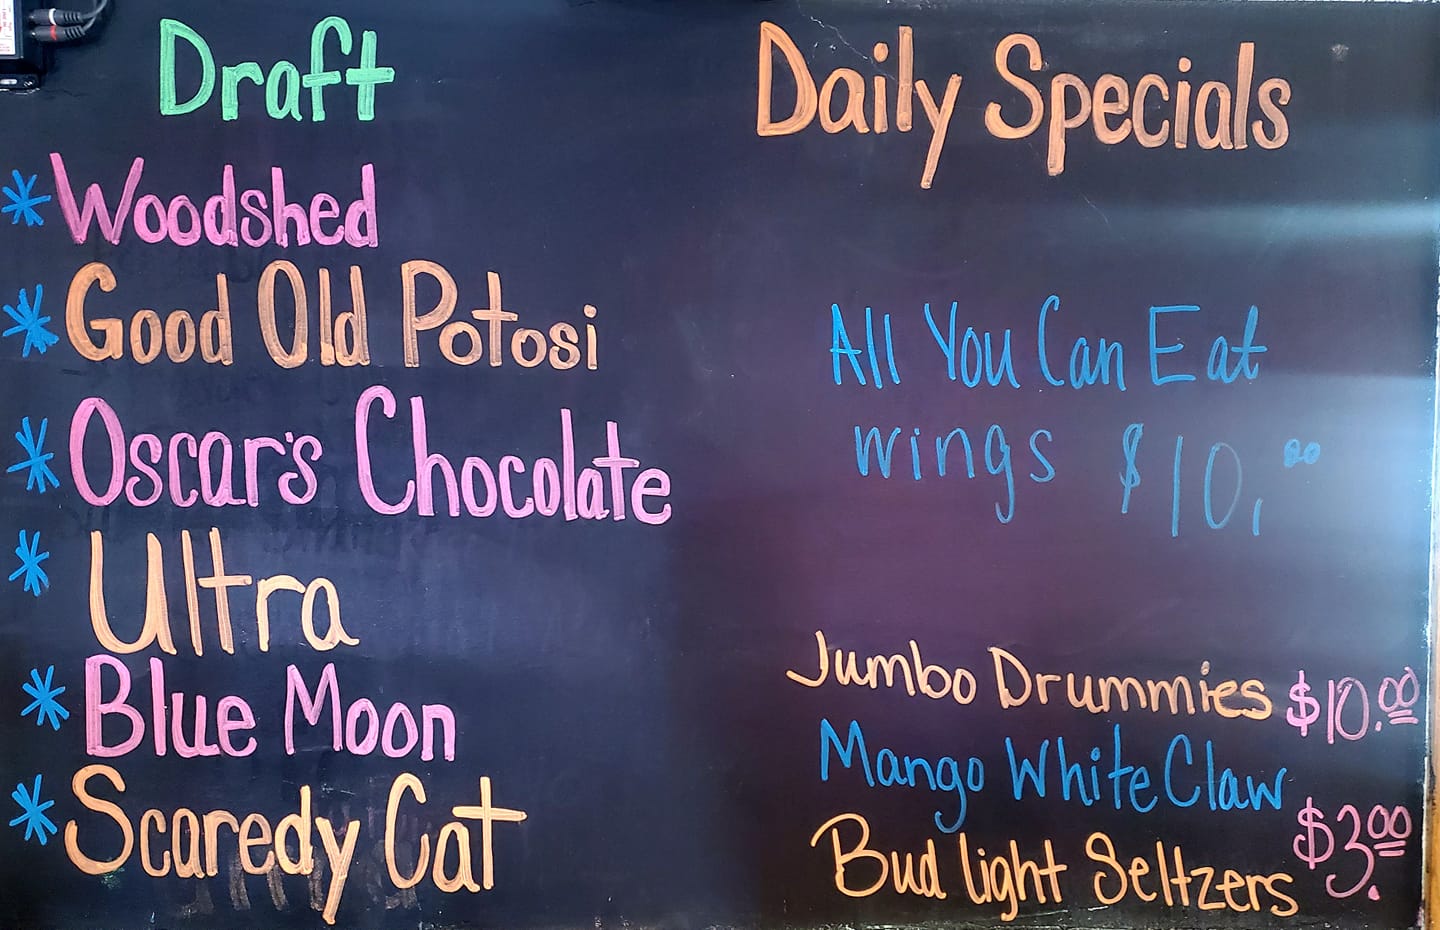 Draft
* Woodshed
* Good Old Potosi
* Oscar's Chocolate
* Ultra
* Blue Moon
* Scaredy Cat
Daily Specials
All You Can Eat
wings $10.00
Jumbo Drummies $10.00
Mango White Claw
Bud light Seltzers $3.00